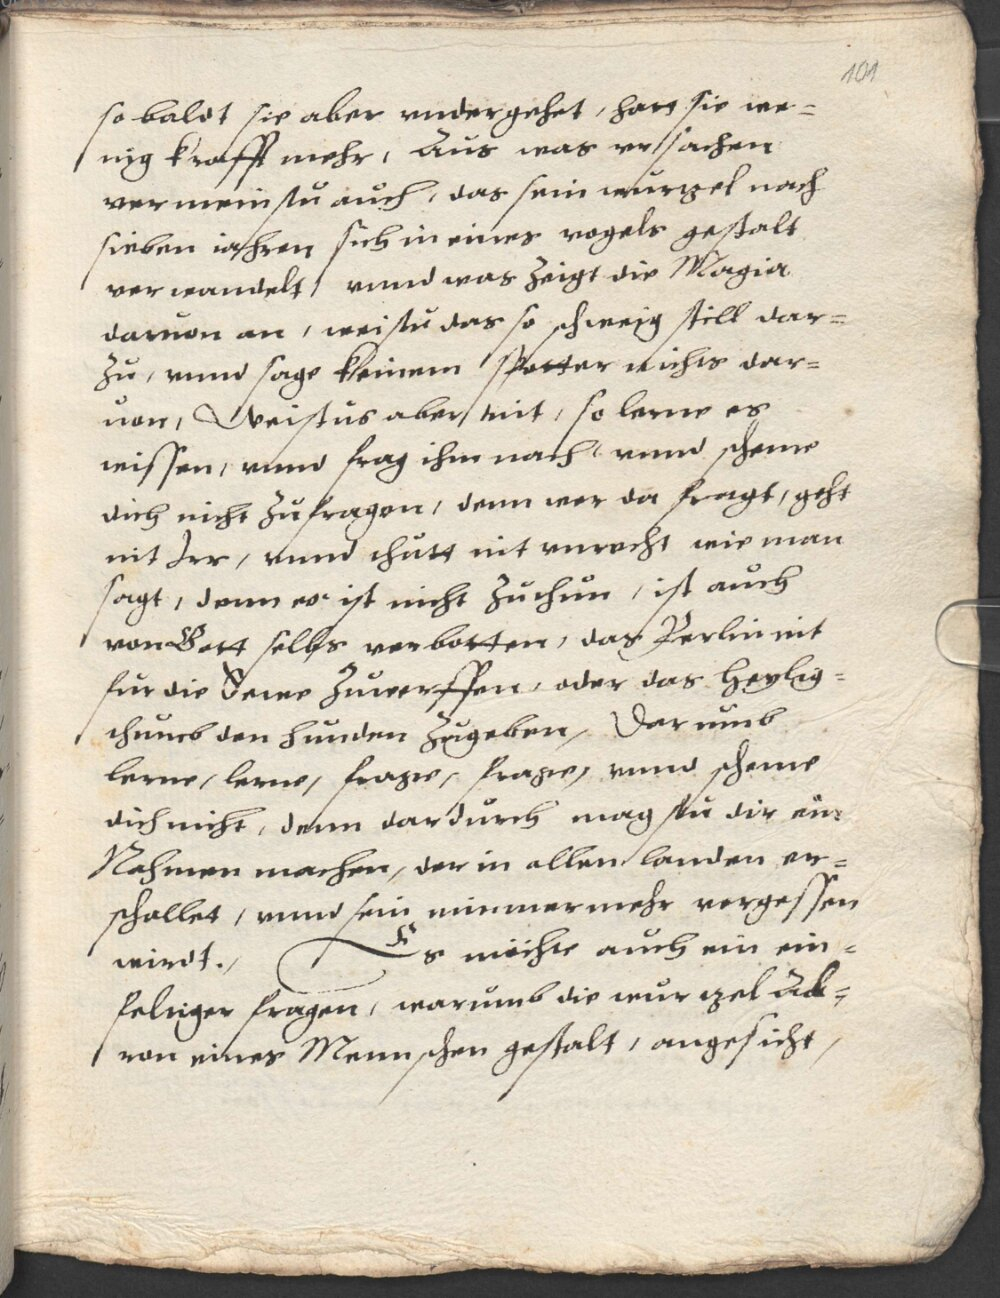 101
so baldt sie aber vndergehet, hatt sie we=
nig krafft mehr, Aus was vrsachen
vermeinstu auch, das sein wurtzel nach
sieben iahren sich in eines vogels gestalt
verwandelt, vnnd was zeigt die Magia
daruon an, weistu das so schweig still dar=
zu, vnnd sage keinem spotter nichts dar=
uon, Weistus aber nit, so lerne es
wissen, vnnd frag ihm nach, vnnd scheme
dich nicht zufragen, denn wer da fragt, geht
nit Irr, vnnd thutt nit vnrecht wie man
sagt, denn es ist nicht zuthun, ist auch
von Gott selbs verbotten, das Perlin nit
fur die Sewe zuwerffen, oder das heylig=
thumb den hunden zugeben, Darumb
lerne, lerne, frage, frage, vnnd scheme
dich nicht, denn dardurch magstu dir ein
Nahmen machen, der in allen landen er=
schallet, vnnd sein nimmermehr vergessen
wirdt., Es möchte auch ein ein=
feltiger fragen, warumb die wurtzel
ron eines Mennschen gestalt, angesicht,